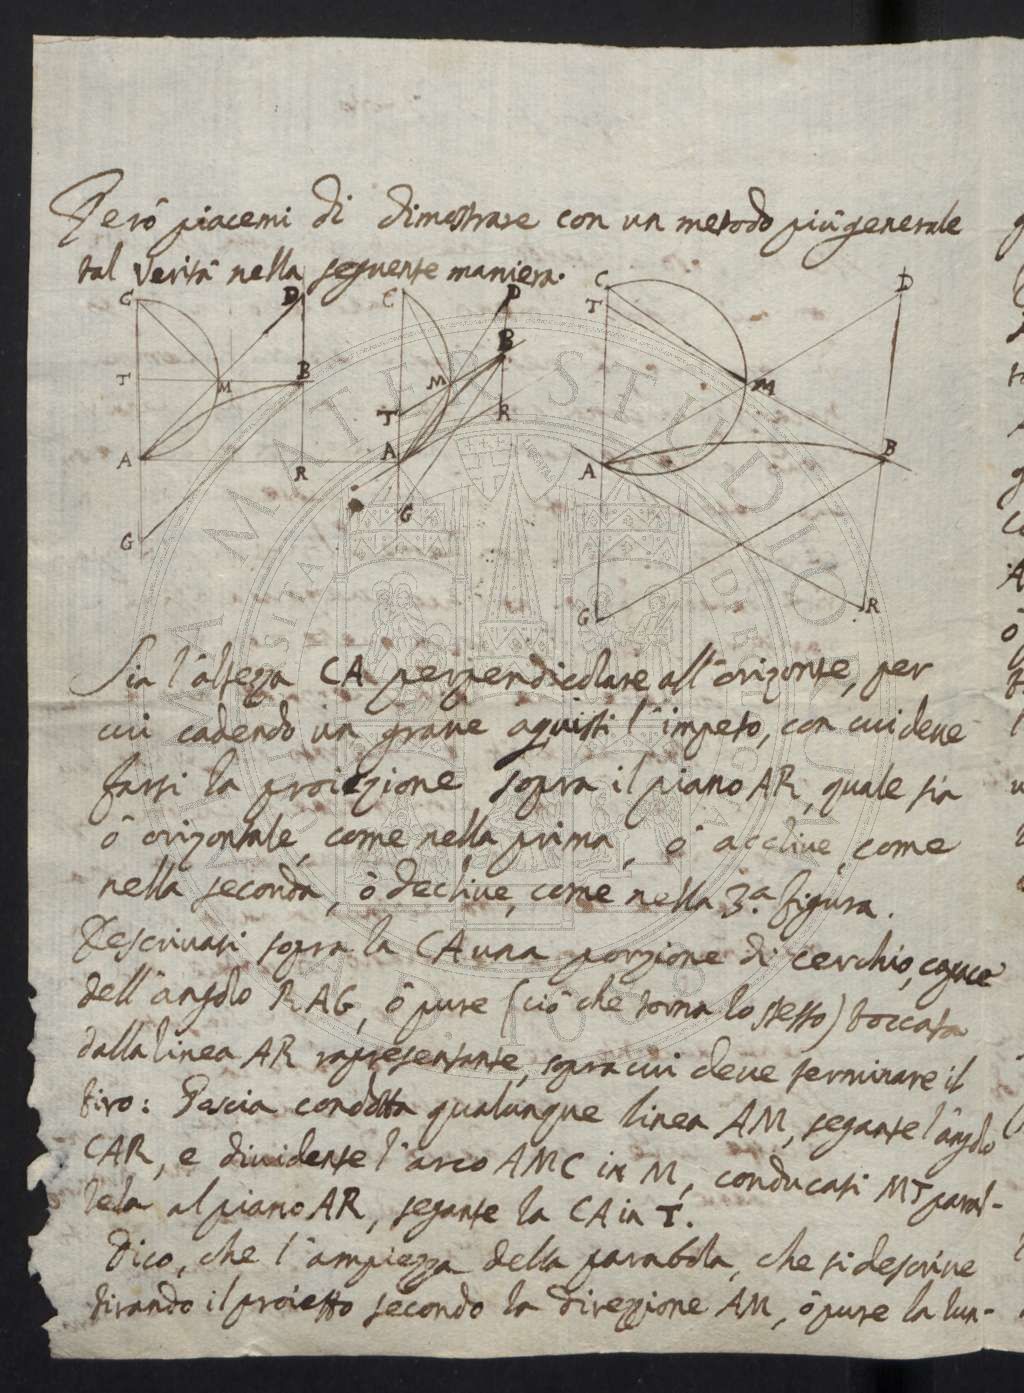 Però piacemi di dimostrare con un metodo più generale
tal Verità nella seguente maniera.
C D C D C D
T M B M B T M
T R B
A R A A
G G G R
Sia l'altezza CA perpendicolare all'orizonte, per
cui cadendo un graue aquisti l'impeto, con cui deue
farsi la proiezione sopra il piano AR, quale sia
ò orizontale, come nella prima, ò accliue, come
nella seconda, ò decliue, come nella 3.ª figura.
Descriuasi sopra la CA una porzione di cerchio, capace
dell'angolo RAG, ò pure (ciò che torna lo stesso) toccata
dalla linea AR rapresentante, sopra cui deue terminare il
tiro: Poscia condotta qualunque linea AM, segante l'angolo
CAR, e diuidente l'arco AMC in M, conducasi MT paral-
lela al piano AR, segante la CA in T.
Dico, che l'ampiezza della parabola, che si descriue
tirando il proietto secondo la direzzione AM, ò pure la lun-
ALMA MATER STUDIORUM